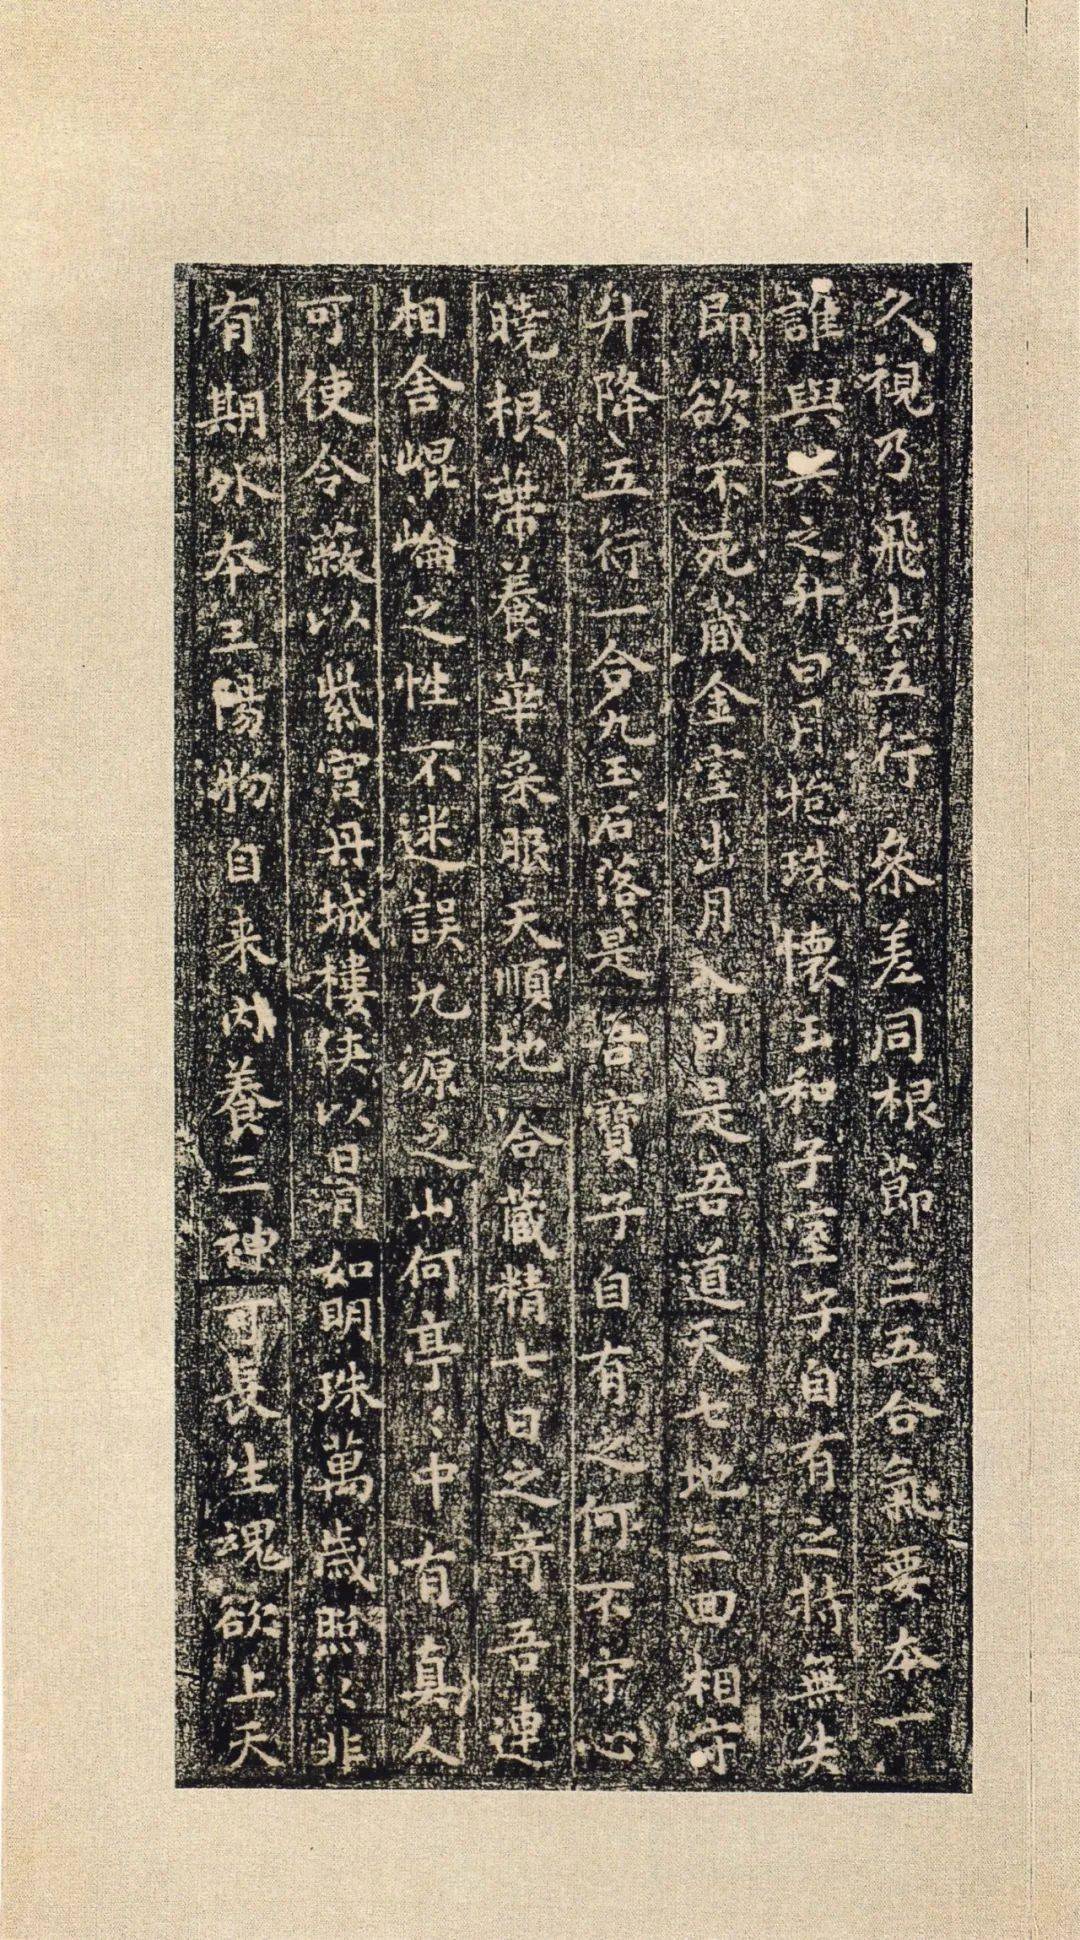 久視乃飛去五行叅差同根節三五合氣要本一
誰與共之升日月抱珠懷玉和子室子自有之持無失
即欲不死藏金室出月入日是吾道天七地三回相守
升降五行一合九玉石落〻是吾寶子自有之何不守心
曉根蒂養華采服天順地合藏精七日之奇吾連
相舍崐崘之性不迷誤九源之山何亭〻中有真人
可使令蔽以紫宮丹城樓俠以日月如明珠萬歲照〻非
有期外本三陽物自来內養三神可長生魂欲上天